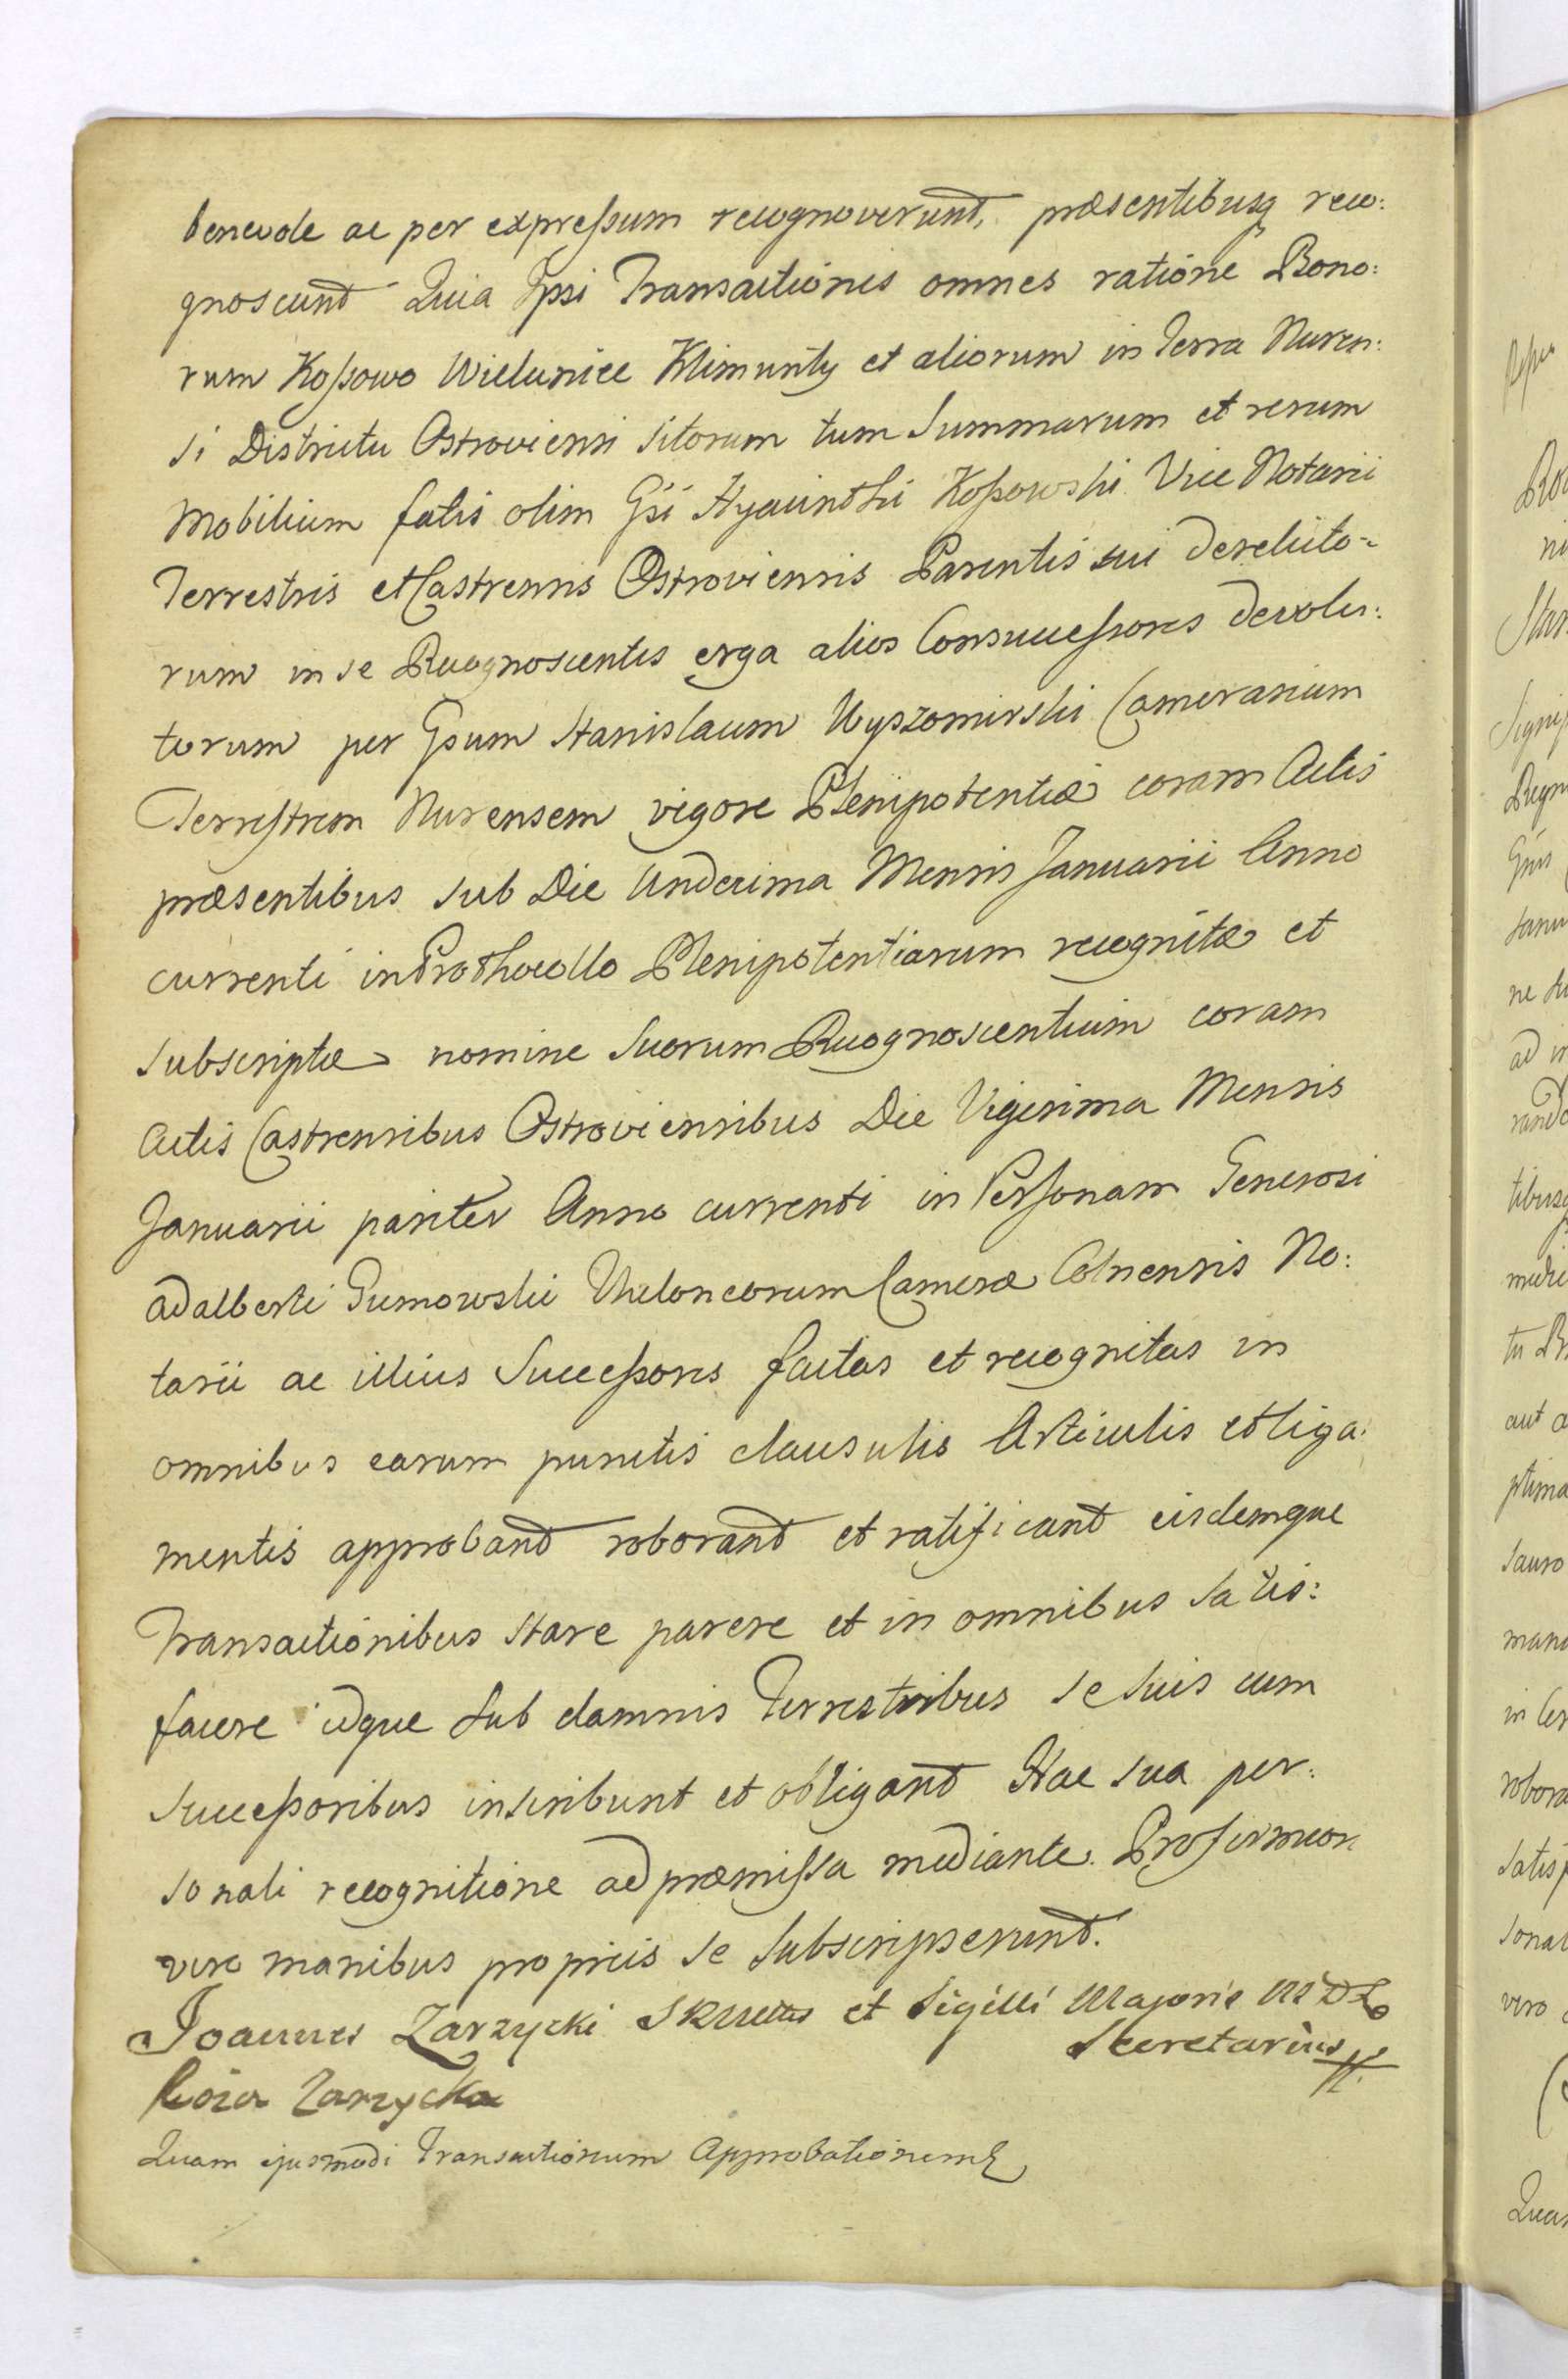 benevole ac per expressum recognoverunt, præsentibusq reco:
gnoscunt Quia Ipsi Transactiones omnes ratione Bono:
rum Kossowo Wielunice Klimunty et aliorum in Terra Nuren:
si Districtu Ostroviensi Sitorum tum Summarum et rerum
Mobilium fatis olim Gsi Hyacinthi Kossowski Vice Notarii
Terrestris et Castrensis Ostroviensis Parentis sui derelicto-
rum in se Recognoscentes erga alios Consuccessores devolu:
torum per Gsum Stanislaum Wyszomirski Camerarium
Terrestrem Nurensem vigore Plenipotentiæ coram Actis
præsentibus sub Die Undecima Mensis Januarii Anno
currenti in Prothocollo Plenipotentiarum recognitæ et
subscriptæ nomine Suorum Recognoscentium coram
Actis Castrensibus Ostroviensibus Die Vigesima Mensis
Januarii pariter Anno currenti in Personam Generosi
Adalberti Gumowski Theloneorum Cameræ Colnensis No:
tarii ac illius Successores factas et recognitas in
omnibus earum punctis clausulis Articulis et liga:
mentis approbant roborant et ratificant eisdemque
Transactionibus stare parere et in omnibus Satis:
facere idque Sub damnis Terrestribus se Suis cum
Successoribus inscribunt et obligant Hac sua per:
sonali recognitione ad præmissa mediante. Pro firmiori
vero manibus propriis se Subscripserunt.
Joannes Zarzycki et Sigilli Majoris M D L
Secretarius
Roza Zarzycka
Quam ejusmodi Transactionum Approbationem